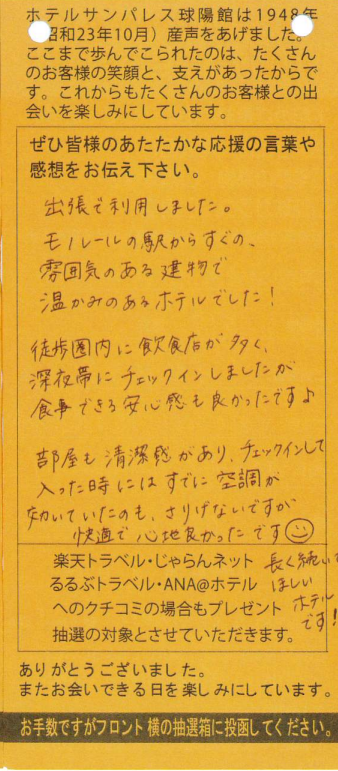 ホテルサンパレス球陽館は1948年
昭和23年10月）産声をあげました。
ここまで歩んでこられたのは、たくさん
のお客様の笑顔と、支えがあったからで
す。これからもたくさんのお客様との出
会いを楽しみにしています。
ぜひ皆様のあたたかな応援の言葉や
感想をお伝え下さい。
出張で利用しました。
モノレールの駅からすぐの、
雰囲気のある建物で
温かみのあるホテルでした！
徒歩圏内に飲食店が多く、
深夜帯にチェックインしましたが
食事できる安心感も良かったですよ
部屋も清潔感があり、チェックインして
入った時にはすでに空調が
効いていたのも、さりげないですが
快適で心地良かったです
長く続いて
ほしい
ホテル
です！
楽天トラベル・じゃらんネット
るるぶトラベル・ANA@ホテル
へのクチコミの場合もプレゼント
抽選の対象とさせていただきます。
ありがとうございました。
またお会いできる日を楽しみにしています。
お手数ですがフロント横の抽選箱に投函してください。